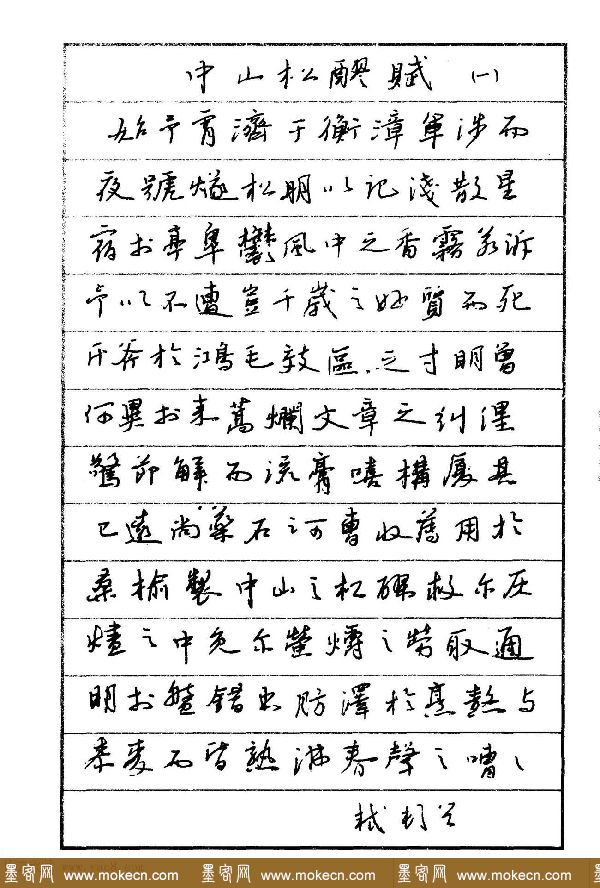 中山松醪賦 (一)
始予宵濟于衡漳軍涉而
夜號燧松明以記淺散星
宿於亭皋鬱風中之香霧若訴
予以不遭豈千歲之妙質而死
斤斧於鴻毛效區、之寸明曾
何異於束蒿爛文章之糾纏
驚節解而流膏嘻構廈其
已遠尚藥石之可曹收薄用於
桑榆製中山之松醪救尔灰
燼之中免尔螢爝之勞取通
明於盤錯出肪澤於烹熬與
黍麥而皆熟沸春聲之嘈、
墨客网 www.mokecn.com 墨客网 www.mokecn.com 墨客网 www.mokecn.com